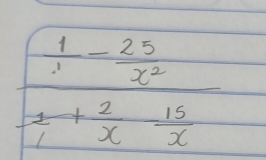 1/1 − 25/x²
1/1 + 2/x − 15/x